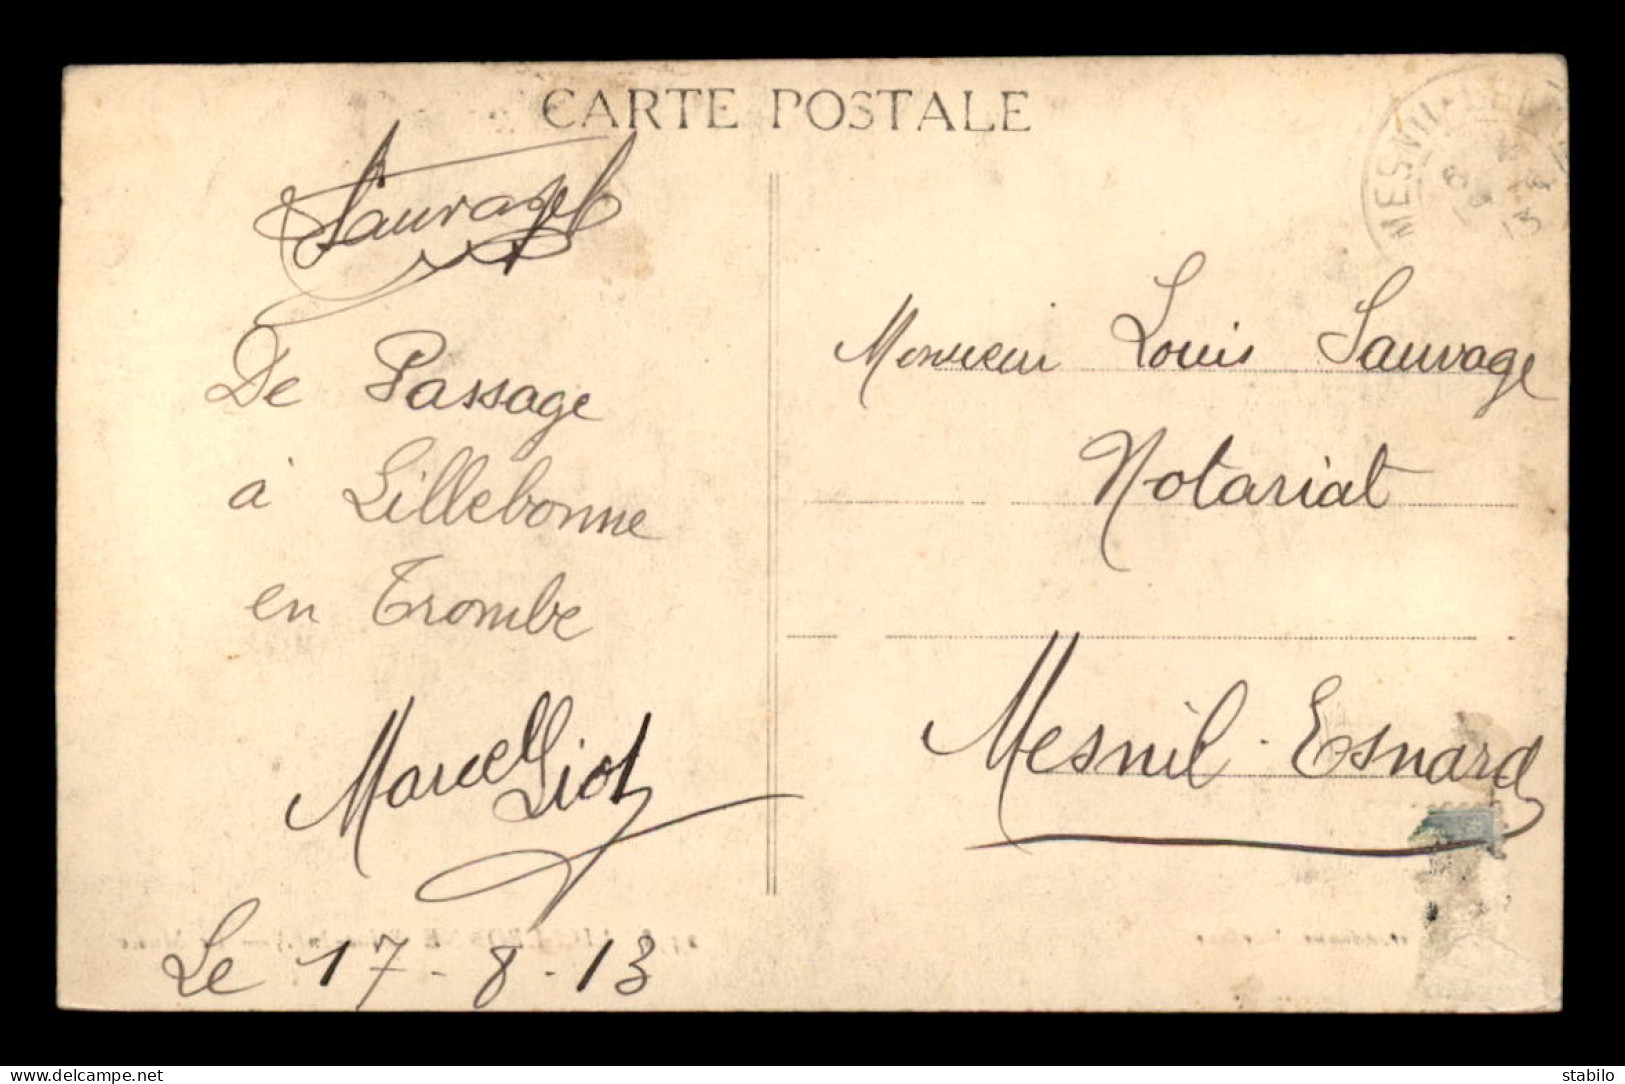 CARTE POSTALE
Sauvage
De Passage
à Lillebonne
en Trombe
Marcel Liot
Le 17-8-13
Monsieur Louis Sauvage
Notariat
Mesnil-Esnard
MESNIL
delcampe.net
stabilo